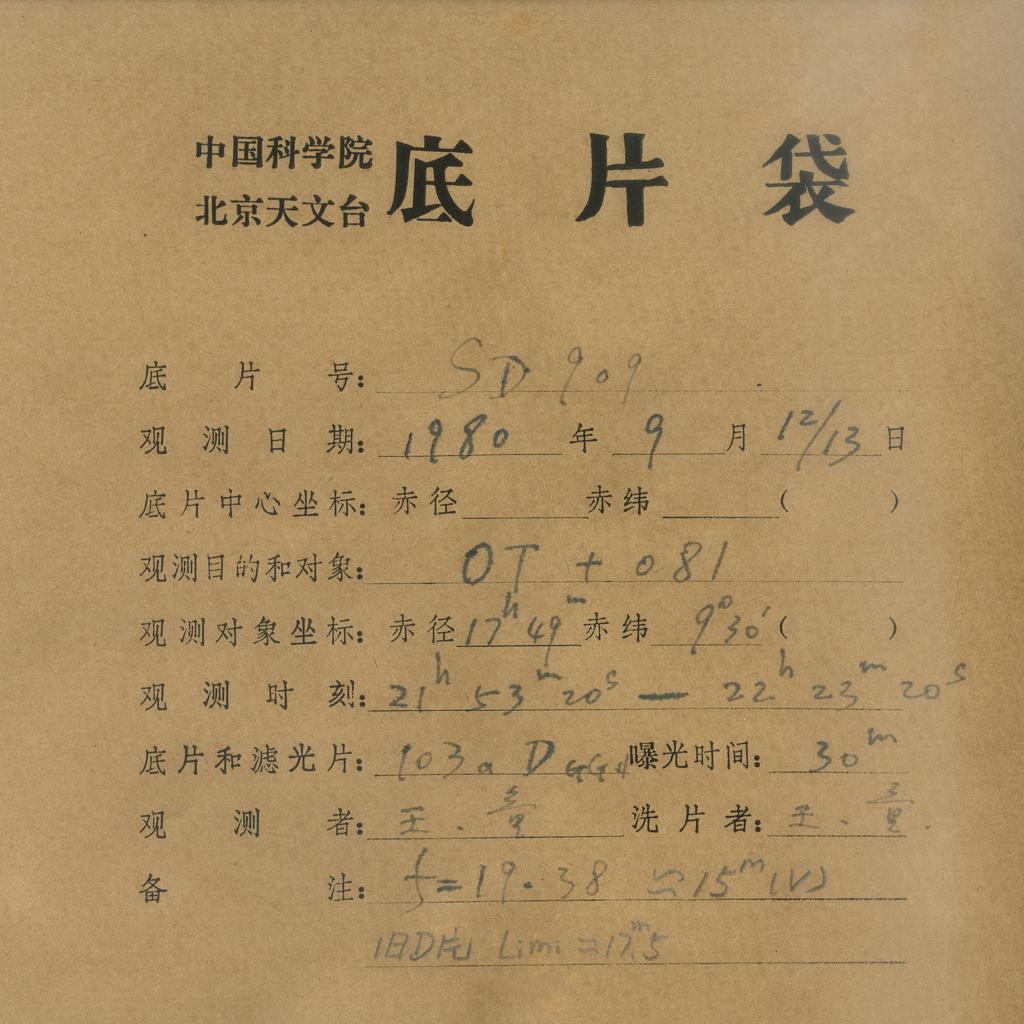 中国科学院
北京天文台
底片袋
底片号: SD 909
观测日期: 1980 年 9 月 12/13 日
底片中心坐标: 赤径 赤纬 ( )
观测目的和对象: OT + 081
观测对象坐标: 赤径 17h 49m 赤纬 9°30′ ( )
观测时刻: 21h 53m 20s — 22h 23m 20s
底片和滤光片: 103a D 曝光时间: 30m
观测者: 王、童 洗片者: 王、童.
备注: f=19.38 15m (V)
旧D片 Limi = 17m.5